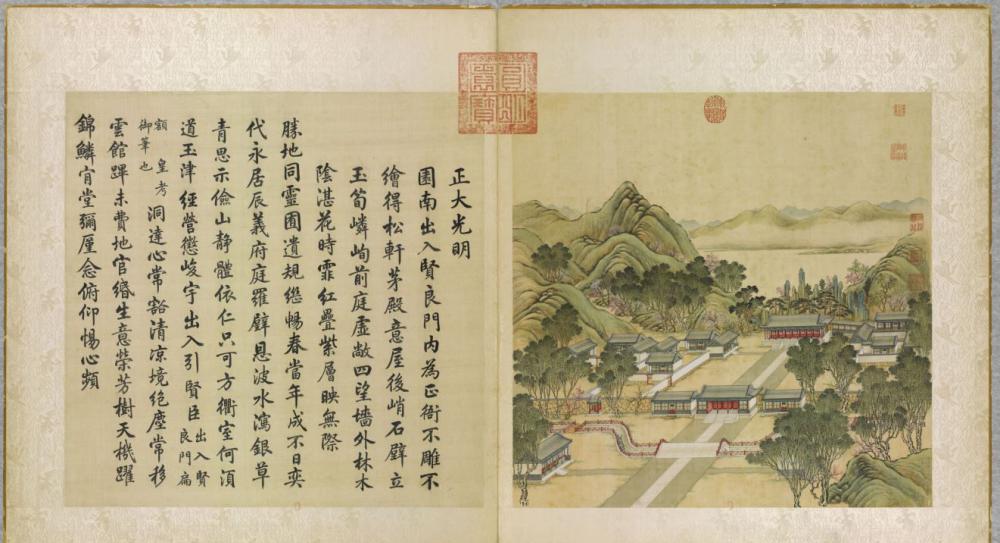 圓明園寶
正大光明
園南出入賢良門內為正衙不雕不
繪得松軒茅殿意屋後峭石壁立
玉筍嶙峋前庭虛敞四望墻外林木
陰湛花時霏紅疊紫層映無際
勝地同靈囿遺規継暢春當年成不日奕
代永居辰義府庭羅壁恩波水瀉銀草
青思示儉山靜體依仁只可方衢室何湏
道玉津經營懲峻宇出入引賢臣出入賢良門扁
額皇考御筆也洞達心常豁清凉境絕塵常移
雲館蹕未費地官緡生意榮芳樹天機躍
錦鱗肎堂彌厪念俯仰惕心頻